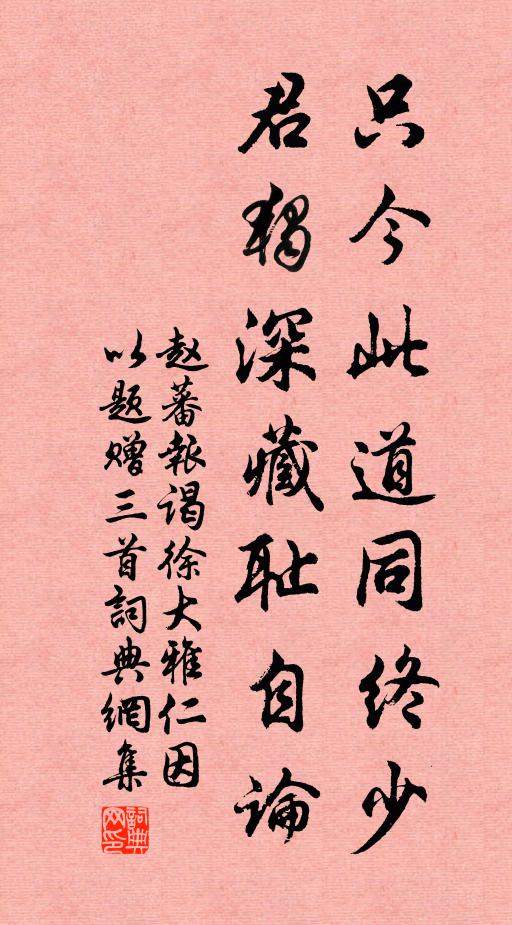 只今此道同终少
君独深藏耻自论
赵蕃报谒徐大雅仁因
以题赠三首詞典網集
詞典网印